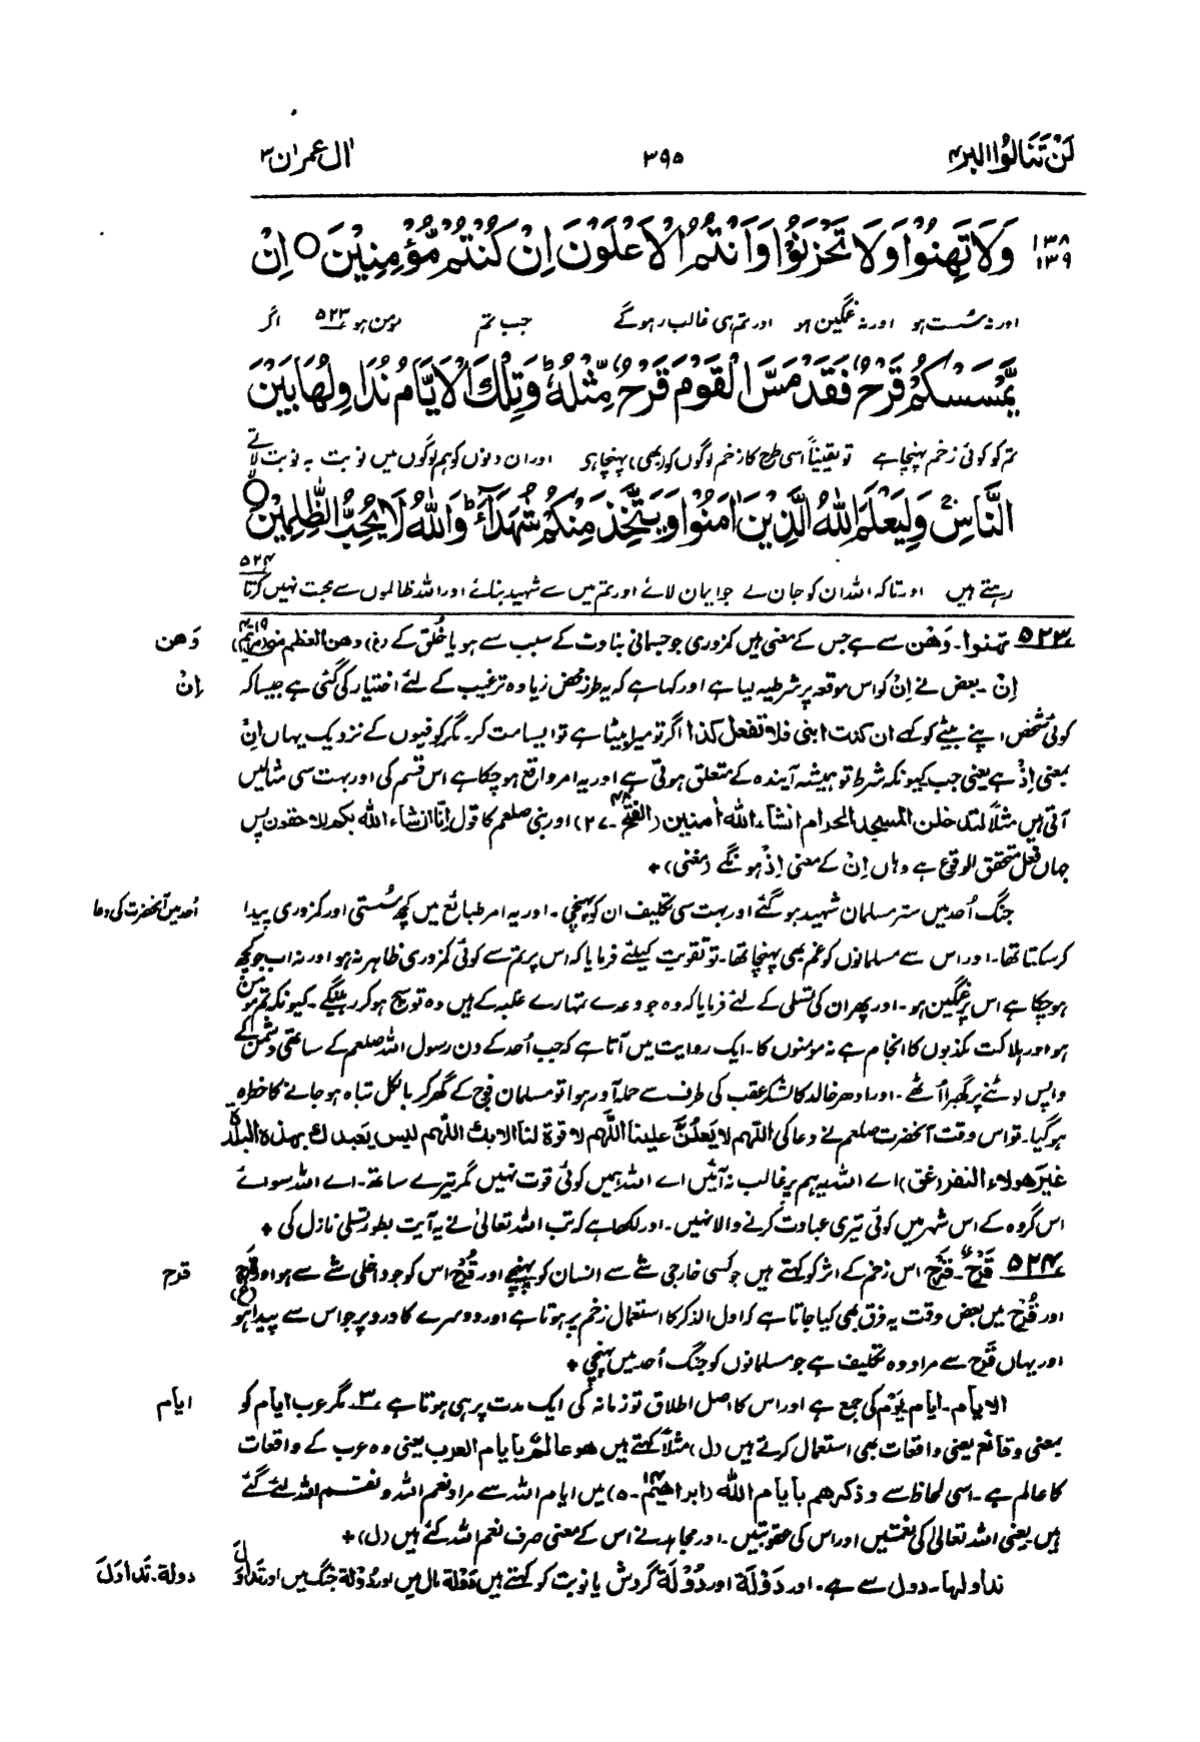 لَنْ تَنَالُوا البر ۴
۳۹۵
اٰل عمرٰن ۳
۱۳۸
۱۳۹
وَلَا تَهِنُوْا وَلَا تَحْزَنُوْا وَاَنْتُمُ الْاَعْلَوْنَ اِنْ كُنْتُمْ مُّؤْمِنِيْنَ ○ اِنْ
اور نہ سُست ہو اور نہ غمگین ہو اور تم ہی غالب رہو گے جب تم مومن ہو ۵۲۳ اگر
يَّمْسَسْكُمْ قَرْحٌ فَقَدْ مَسَّ الْقَوْمَ قَرْحٌ مِّثْلُهٗ ؕ وَتِلْكَ الْاَيَّامُ نُدَاوِلُهَا بَيْنَ
تم کو کوئی زخم پہنچا ہے تو یقیناً اسی طرح کا زخم لوگوں کو (بھی) پہنچا ہے اور ان دنوں کو ہم لوگوں میں نوبت بہ نوبت لاتے
النَّاسِ ۚ وَلِيَعْلَمَ اللّٰهُ الَّذِيْنَ اٰمَنُوْا وَيَتَّخِذَ مِنْكُمْ شُهَدَآءَ ؕ وَاللّٰهُ لَا يُحِبُّ الظّٰلِمِيْنَ ○
رہتے ہیں اور تاکہ اللہ ان کو جان لے جو ایمان لائے اور تم میں سے شہید بنائے اور اللہ ظالموں سے محبت نہیں کرتا ۵۲۴
۵۲۳ تهنوا۔ وَهْن سے ہے جس کے معنی ہیں کمزوری جو جسمانی بناوت کے سبب سے ہو یا خُلق کے (غ) وهن العظم منی (مریم ۱۹۔۴)
وَهن
اِنْ ۔ بعض نے اِنْ کو اس موقعہ پر شرطیہ لیا ہے اور کہا ہے کہ یہ طرز محض زیادہ ترغیب کے لئے اختیار کی گئی ہے جیسا کہ
اِنْ
کوئی شخص اپنے بیٹے کو کہے ان کنت ابنی فلا تفعل کذا اگر تو میرا بیٹا ہے تو ایسا مت کر۔ مگر کوفیوں کے نزدیک یہاں اِنْ
بمعنی اِذْ ہے یعنی جب کیونکہ شرط تو ہمیشہ آیندہ کے متعلق ہوتی ہے اور یہ امر واقع ہو چکا ہے اس قسم کی اور بہت سی مثالیں
آتی ہیں مثلاً لتدخلن المسجد الحرام انشاء الله اٰمنین (الفتح ۴۸۔ ۲۷) اور نبی صلعم کا قول انّا انشاء الله بکم للاحقون پس
جہاں فعل متحقق الوقوع ہے وہاں اِنْ کے معنی اِذْ ہونگے (مغنی) +
جنگ اُحد میں ستر مسلمان شہید ہو گئے اور بہت سی تکلیف ان کو پہنچی ۔ اور یہ امر طبائع میں کچھ سُستی اور کمزوری پیدا
اُحد میں آنحضرت کی دعا
کر سکتا تھا۔ اور اس سے مسلمانوں کو غم بھی پہنچا تھا۔ تو تقویت کیلئے فرمایا کہ اس پر تم سے کوئی کمزوری ظاہر نہ ہو اور نہ اب جو کچھ
ہو چکا ہے اس پر غمگین ہو۔ اور پھر ان کی تسلی کے لئے فرمایا کہ وہ جو وعدے تمہارے غلبہ کے ہیں وہ تو سچ ہو کر رہینگے۔ کیونکہ تم مومن
ہو اور ہلاکت مکذبوں کا انجام ہے نہ مومنوں کا۔ ایک روایت میں آتا ہے کہ جب اُحد کے دن رسول اللہ صلعم کے ساتھی دشمن کے
واپس لوٹنے پر گھبرا اُٹھے ۔ اور ادھر خالد کا لشکر عقب کی طرف سے حملہ آور ہوا تو مسلمان فوج کے گھر کر بالکل تباہ ہو جانے کا خطرہ
ہو گیا۔ تو اس وقت آنحضرت صلعم نے دعا کی اللّٰهم لا یعلُنَّ علینا اللّٰهم لا قوة لنا الا بك اللّٰهم لیس یعبدك بهذه البلدة
غیرَ هولاء النفر (غق) اے اللہ یہ ہم پر غالب نہ آئیں اے اللہ ہمیں کوئی قوت نہیں مگر تیرے ساتھ۔ اے اللہ سوائے
اس گروہ کے اس شہر میں کوئی تیری عبادت کرنے والا نہیں۔ اور لکھا ہے کہ تب اللہ تعالیٰ نے یہ آیت بطور تسلی نازل کی +
۵۲۴ قَرْحٌ۔ قَرْح اس زخم کے اثر کو کہتے ہیں جو کسی خارجی شے سے انسان کو پہنچے اور قُرْح اس کو جو داخلی شے سے ہو اور قَرح (غ)
قرح
اور قُرْح میں بعض وقت یہ فرق بھی کیا جاتا ہے کہ اول الذکر کا استعمال زخم پر ہوتا ہے اور دوسرے کا درد پر جو اس سے پیدا ہو
اور یہاں قَرْح سے مراد وہ تکلیف ہے جو مسلمانوں کو جنگ اُحد میں پہنچی +
الایام۔ ایام یَوْم کی جمع ہے اور اس کا اصل اطلاق تو زمانہ کی ایک مدت پر ہی ہوتا ہے ۳۔ مگر عرب ایام کو
ایام
بمعنی وقائع یعنی واقعات بھی استعمال کرتے ہیں (ل) مثلاً کہتے ہیں هو عالم بایام العرب یعنی وہ عرب کے واقعات
کا عالم ہے۔ اسی لحاظ سے وذکرهم بایام الله (ابراهیم ۱۴۔ ۵) میں ایام اللہ سے مراد نعم اللہ و نقم اللہ لئے گئے
ہیں یعنی اللہ تعالیٰ کی نعمتیں اور اس کی عقوبتیں۔ اور مجاہد نے اس کے معنی صرف نعم اللہ کئے ہیں (ل) +
نداولها۔ دول سے ہے۔ اور دَوْلَة اور دُوْلَة گردش یا نوبت کو کہتے ہیں دُوْلة مال میں اور دَوْلة جنگ میں اور تَدَاوَلَ
دولة۔ تَدَاوَلَ